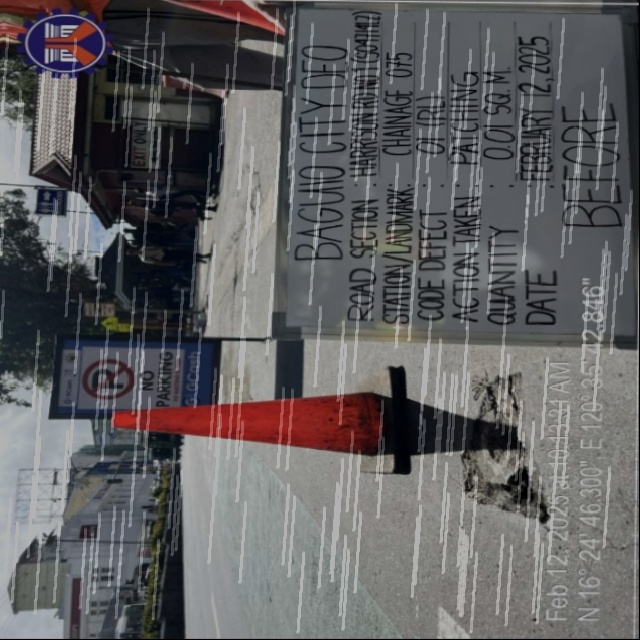 BAGUIO CITY DEO
ROAD SECTION :
STATION/LNDMARK: CHAINAGE 075
CODE DEFECT :
ACTION TAKEN : PATCHING
QUANTITY : 0.01 SQ M.
DATE : FEBRUARY 12, 2025
BEFORE
NO
PARKING
Feb 12, 2025
N 16° 24' 46.300" E 120° 35' 42.846"